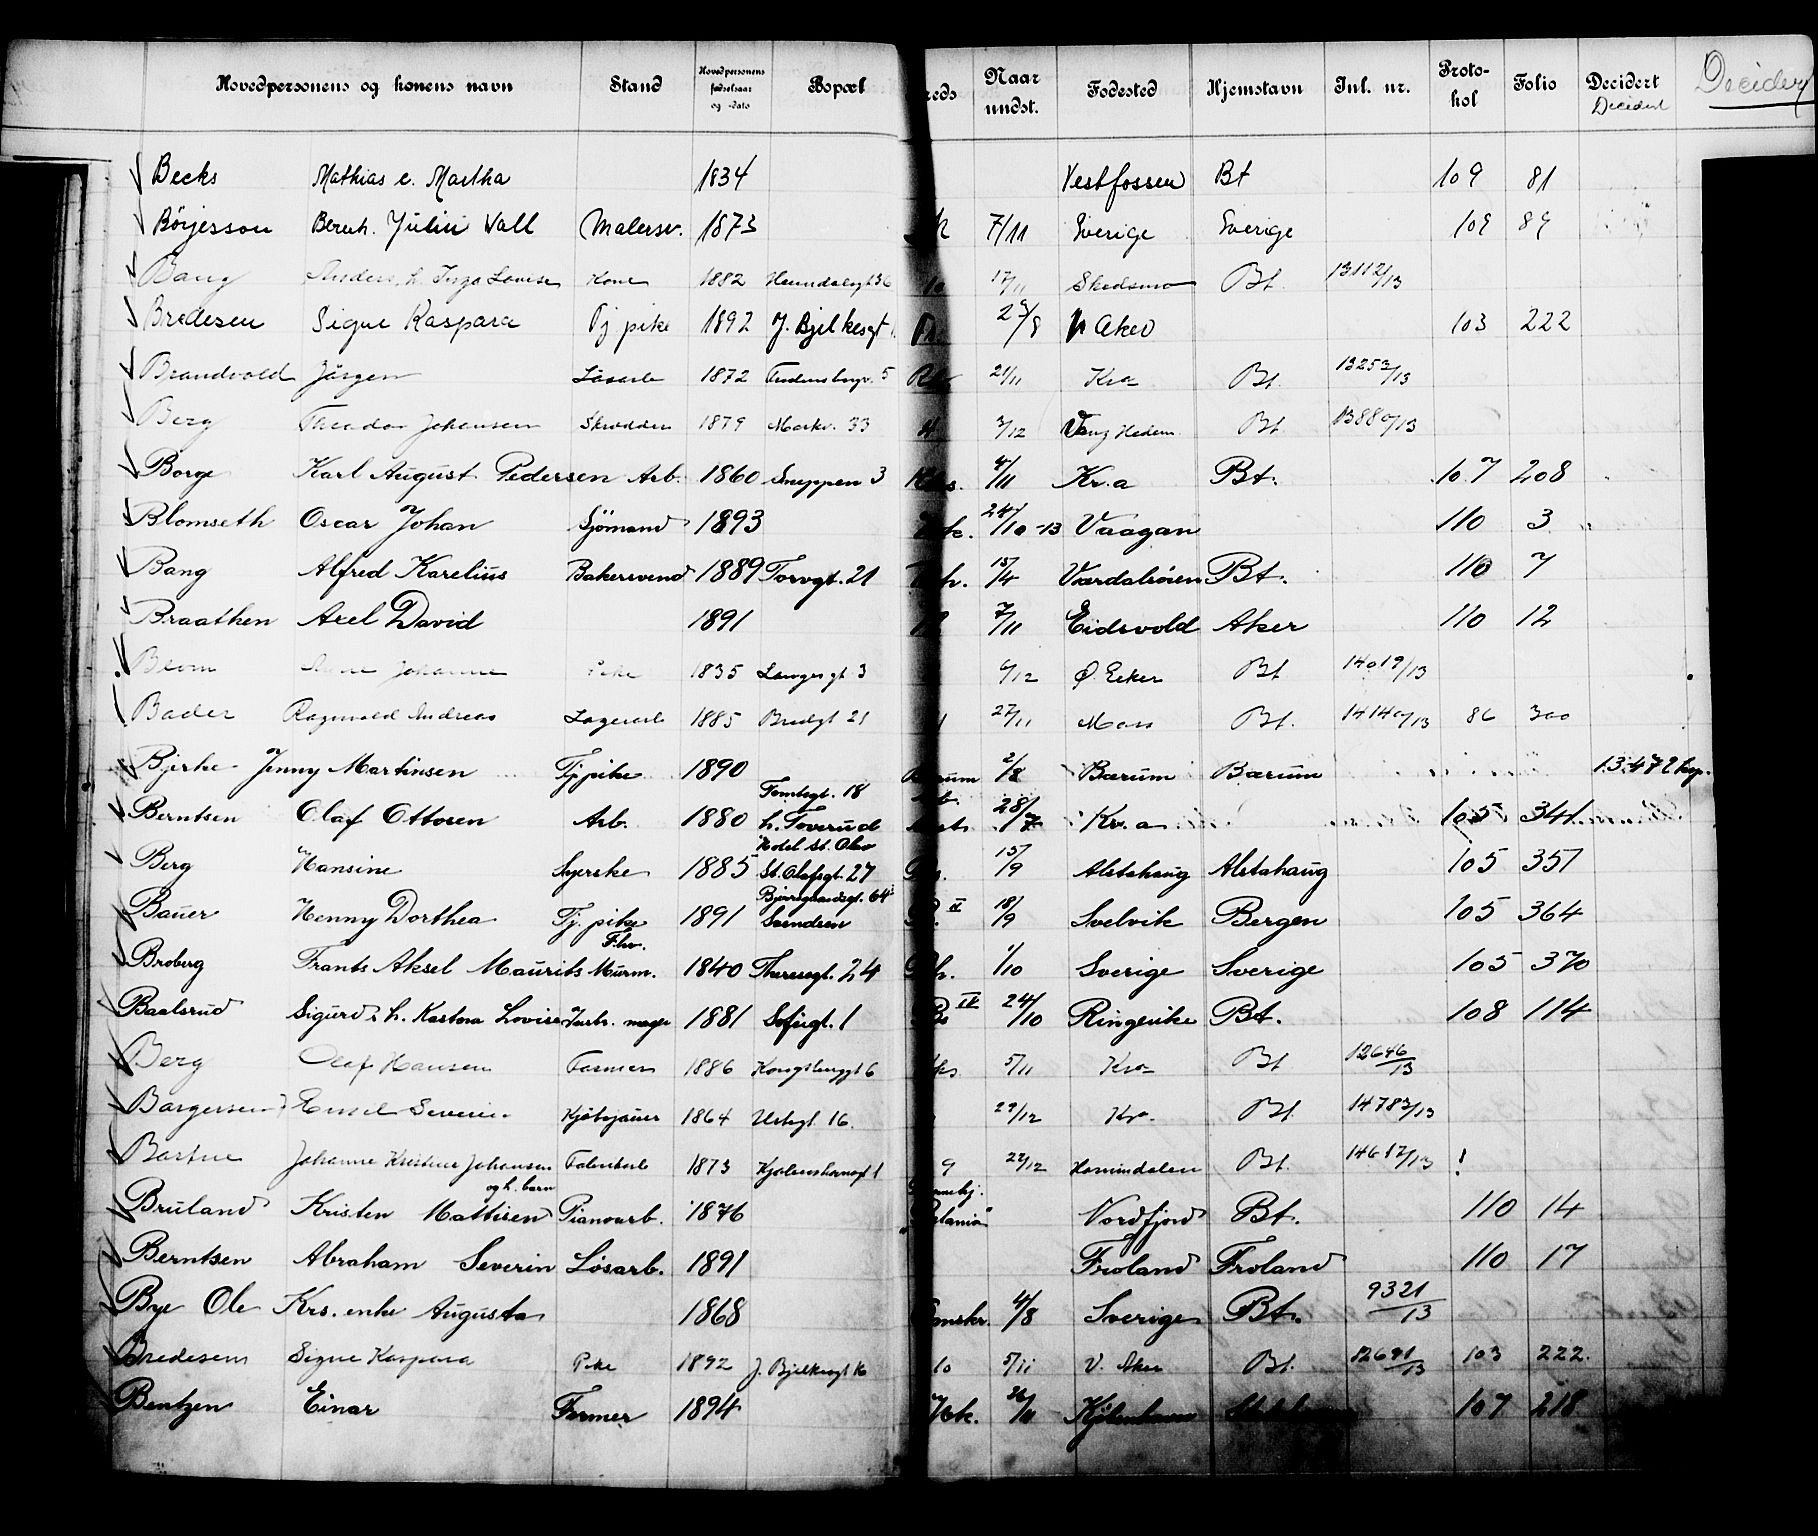 Hovedpersonens og konens navn Stand Hovedpersonens fødselsaar og -dato Bopæl reds Naar undst. Fødested Hjemstavn Inl. nr. Proto-kol Folio Decidert Decidert Decidert
Becks Mathias e. Martha 1834 Vestfossen Bt 109 81
Börjesson Bernh. Julin Wall Malersv. 1873 7/11 Sverige Sverige 109 89
Bang Anders, h. Inga Lovise Kone 1882 36 10 17/11 Skedsmo Bt. 13112/13
Bredesen Signe Kaspara Tj pike 1892 J. Bjelkesgt 29/8 V Aker 103 222
Brandvold Jörgen Lösarb 1872 5 21/11 Kra Bt. 13252/13
Berg Theodor Johansen Skrædder 1879 Markv. 33 4 3/12 Vang Hedem. Bt. 13880/13
Borge Karl August Pedersen Arb. 1860 Sneppen 3 4/11 Kr.a Bt. 107 208
Blomseth Oscar Johan Sjömand 1893 24/10-13 Vaagan 110 3
Bang Alfred Karelius Bakersvend 1889 Torvgt. 21 15/4 Værdalsören Bt. 110 7
Braathen Axel David 1891 7/11 Eidsvold Aker 110 12
Blom Anne Johanne Pike 1835 Langesgt 3 6/12 Ø. Eeker Bt 14019/13
Bader Ragnvald Andreas Lagerarb 1885 Bredgt 21 27/11 Moss Bt. 14140/13 86 300
Bjerke Jenny Martinsen Tj pike 1890 2/8 Bærum Bærum 13472 kop.
Berntsen Olaf Ottosen Arb. 1880 Tomtegt. 18 h. Toverud 28/7 Kr.a 105 341
Berg Hansine Syerske 1885 Hotel St. Olav St. Olafsgt. 27 15/9 Alstahaug Alstahaug 105 351
Bauer Henny Dorthea Tj. pike 1891 64 Svendsen II 18/9 Svelvik Bergen 105 364
Broberg Frants Aksel Maurits Fhv. Murm. 1840 Theresegt. 24 1/10 Sverige Sverige 105 370
Baalsrud Sigurd, h. Kastora Lovise 1881 Sofiegt. 1 IV 24/10 Ringerike Bt. 108 114
Berg Olaf Hansen Farmer 1886 Kongsbergt 6 ks. 5/11 Kra Bt 12646/13
Borgersen Emil Severin 1864 16. 29/12 Kra. Bt. 14783/13
Johanne Kristine Johansen og h. barn 1873 1 9 22/12 Bt. 14617/13 !
Bruland Kristen Mattisen Pianoarb. 1876 Nordfjord Bt. 110 14
Berntsen Abraham Severin Løsarb. 1891 Froland Froland 110 17
Bye Ole Krs. enke Augusta 1868 4/8 Sverige Bt. 9321/13
Bredesen Signe Kaspara Pike 1892 J. Bjelkesgt 16 10 5/11 V. Aker Bt. 12691/13 103 222.
Bentzen Einar Former 1894 26/11 Kjöbenhavn 107 218